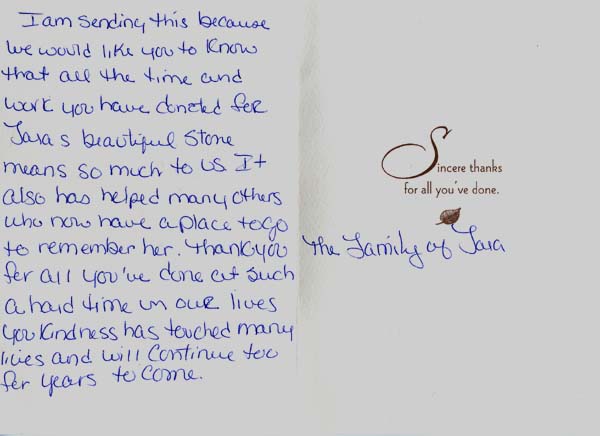 I am sending this because
we would like you to know
that all the time and
work you have donated for
Tara s beautiful stone
means so much to us It
also has helped many others
who now have a place to go
to remember her. Thank you
for all you've done at such
a hard time in our lives
you kindness has touched many
lives and will continue too
for years to come.
Sincere thanks
for all you've done.
The Family of Tara